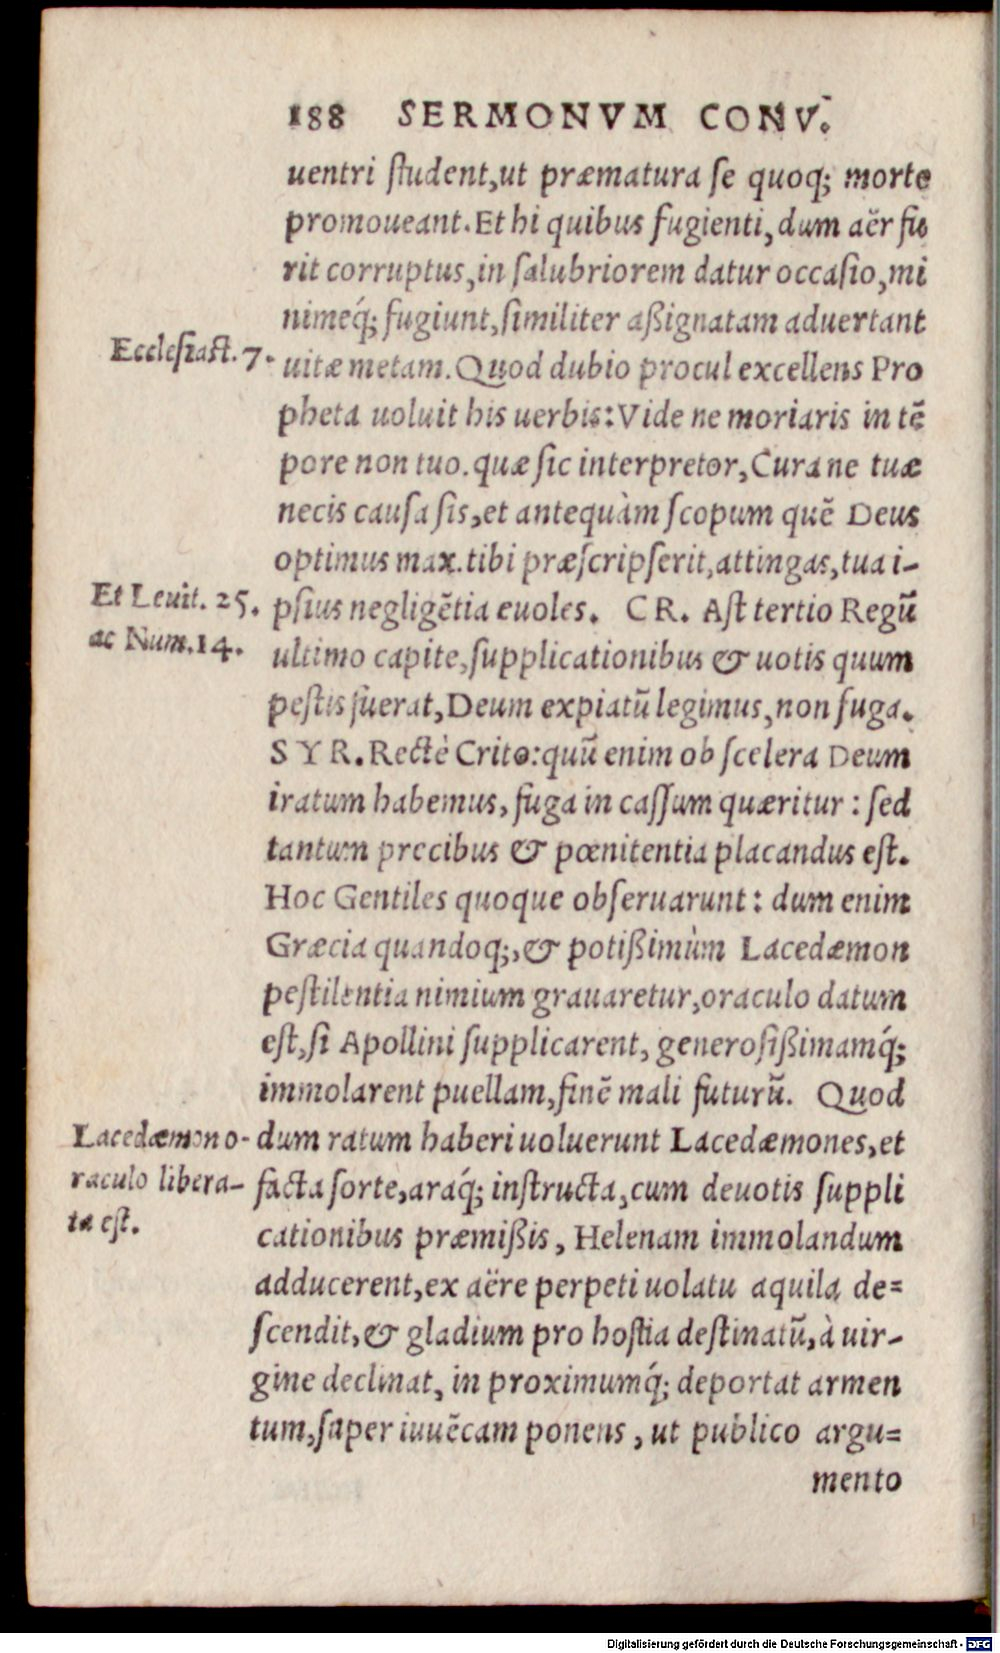 188 SERMONVM CONV.
uentri ſtudent, ut præmatura ſe quoq; morte
promoueant. Et hi quibus fugienti, dum aër fu
rit corruptus, in ſalubriorem datur occaſio, mi
nimeq́; fugiunt, ſimiliter aßignatam aduertant
Eccleſiaſt. 7.
uitæ metam. Quod dubio procul excellens Pro
pheta uoluit his uerbis: Vide ne moriaris in tē
pore non tuo. quæ ſic interpretor, Cura ne tuæ
necis cauſa ſis, et antequàm ſcopum quē Deus
optimus max. tibi præſcripſerit, attingas, tua i-
Et Leuit. 25.
ac Num. 14.
pſius negligētia euoles. CR. Aſt tertio Regū
ultimo capite, ſupplicationibus & uotis quum
peſtis fuerat, Deum expiatū legimus, non fuga.
SYR. Rectè Crito: quū enim ob ſcelera Deum
iratum habemus, fuga in caſſum quæritur: ſed
tantum precibus & pœnitentia placandus eſt.
Hoc Gentiles quoque obſeruarunt: dum enim
Græcia quandoq;, & potißimùm Lacedæmon
peſtilentia nimium grauaretur, oraculo datum
eſt, ſi Apollini ſupplicarent, generoſißimamq́;
immolarent puellam, finē mali futurū. Quod
Lacedæmon o-
raculo libera-
ta eſt.
dum ratum haberi uoluerunt Lacedæmones, et
facta ſorte, araq́; inſtructa, cum deuotis ſuppli
cationibus præmißis, Helenam immolandum
adducerent, ex aëre perpeti uolatu aquila de=
ſcendit, & gladium pro hoſtia deſtinatū, à uir-
gine declinat, in proximumq́; deportat armen
tum, ſuper iuuēcam ponens, ut publico argu=
mento
Digitalisierung gefördert durch die Deutsche Forschungsgemeinschaft - DFG